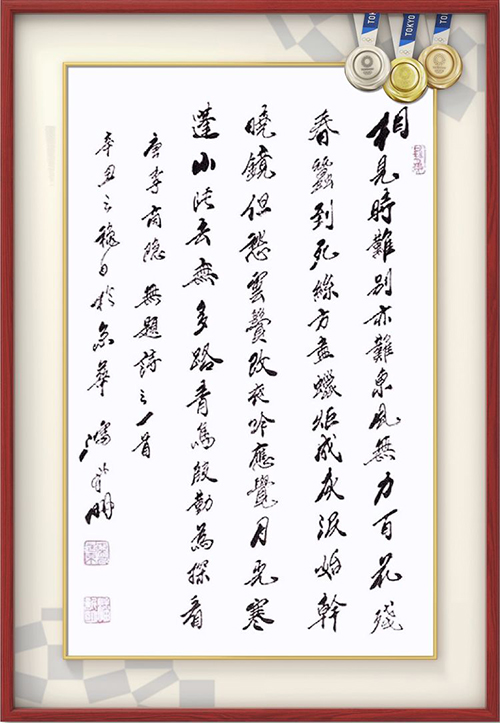 相見時難別亦難東風無力百花殘
春蠶到死絲方盡蠟炬成灰泪始幹
曉鏡但愁雲鬢改夜吟應覺月光寒
蓬山此去無多路青鳥殷勤為探看
唐李商隐無題詩之一首
辛丑之穐日於京華
TOKYO
TOKYO
TOKYO